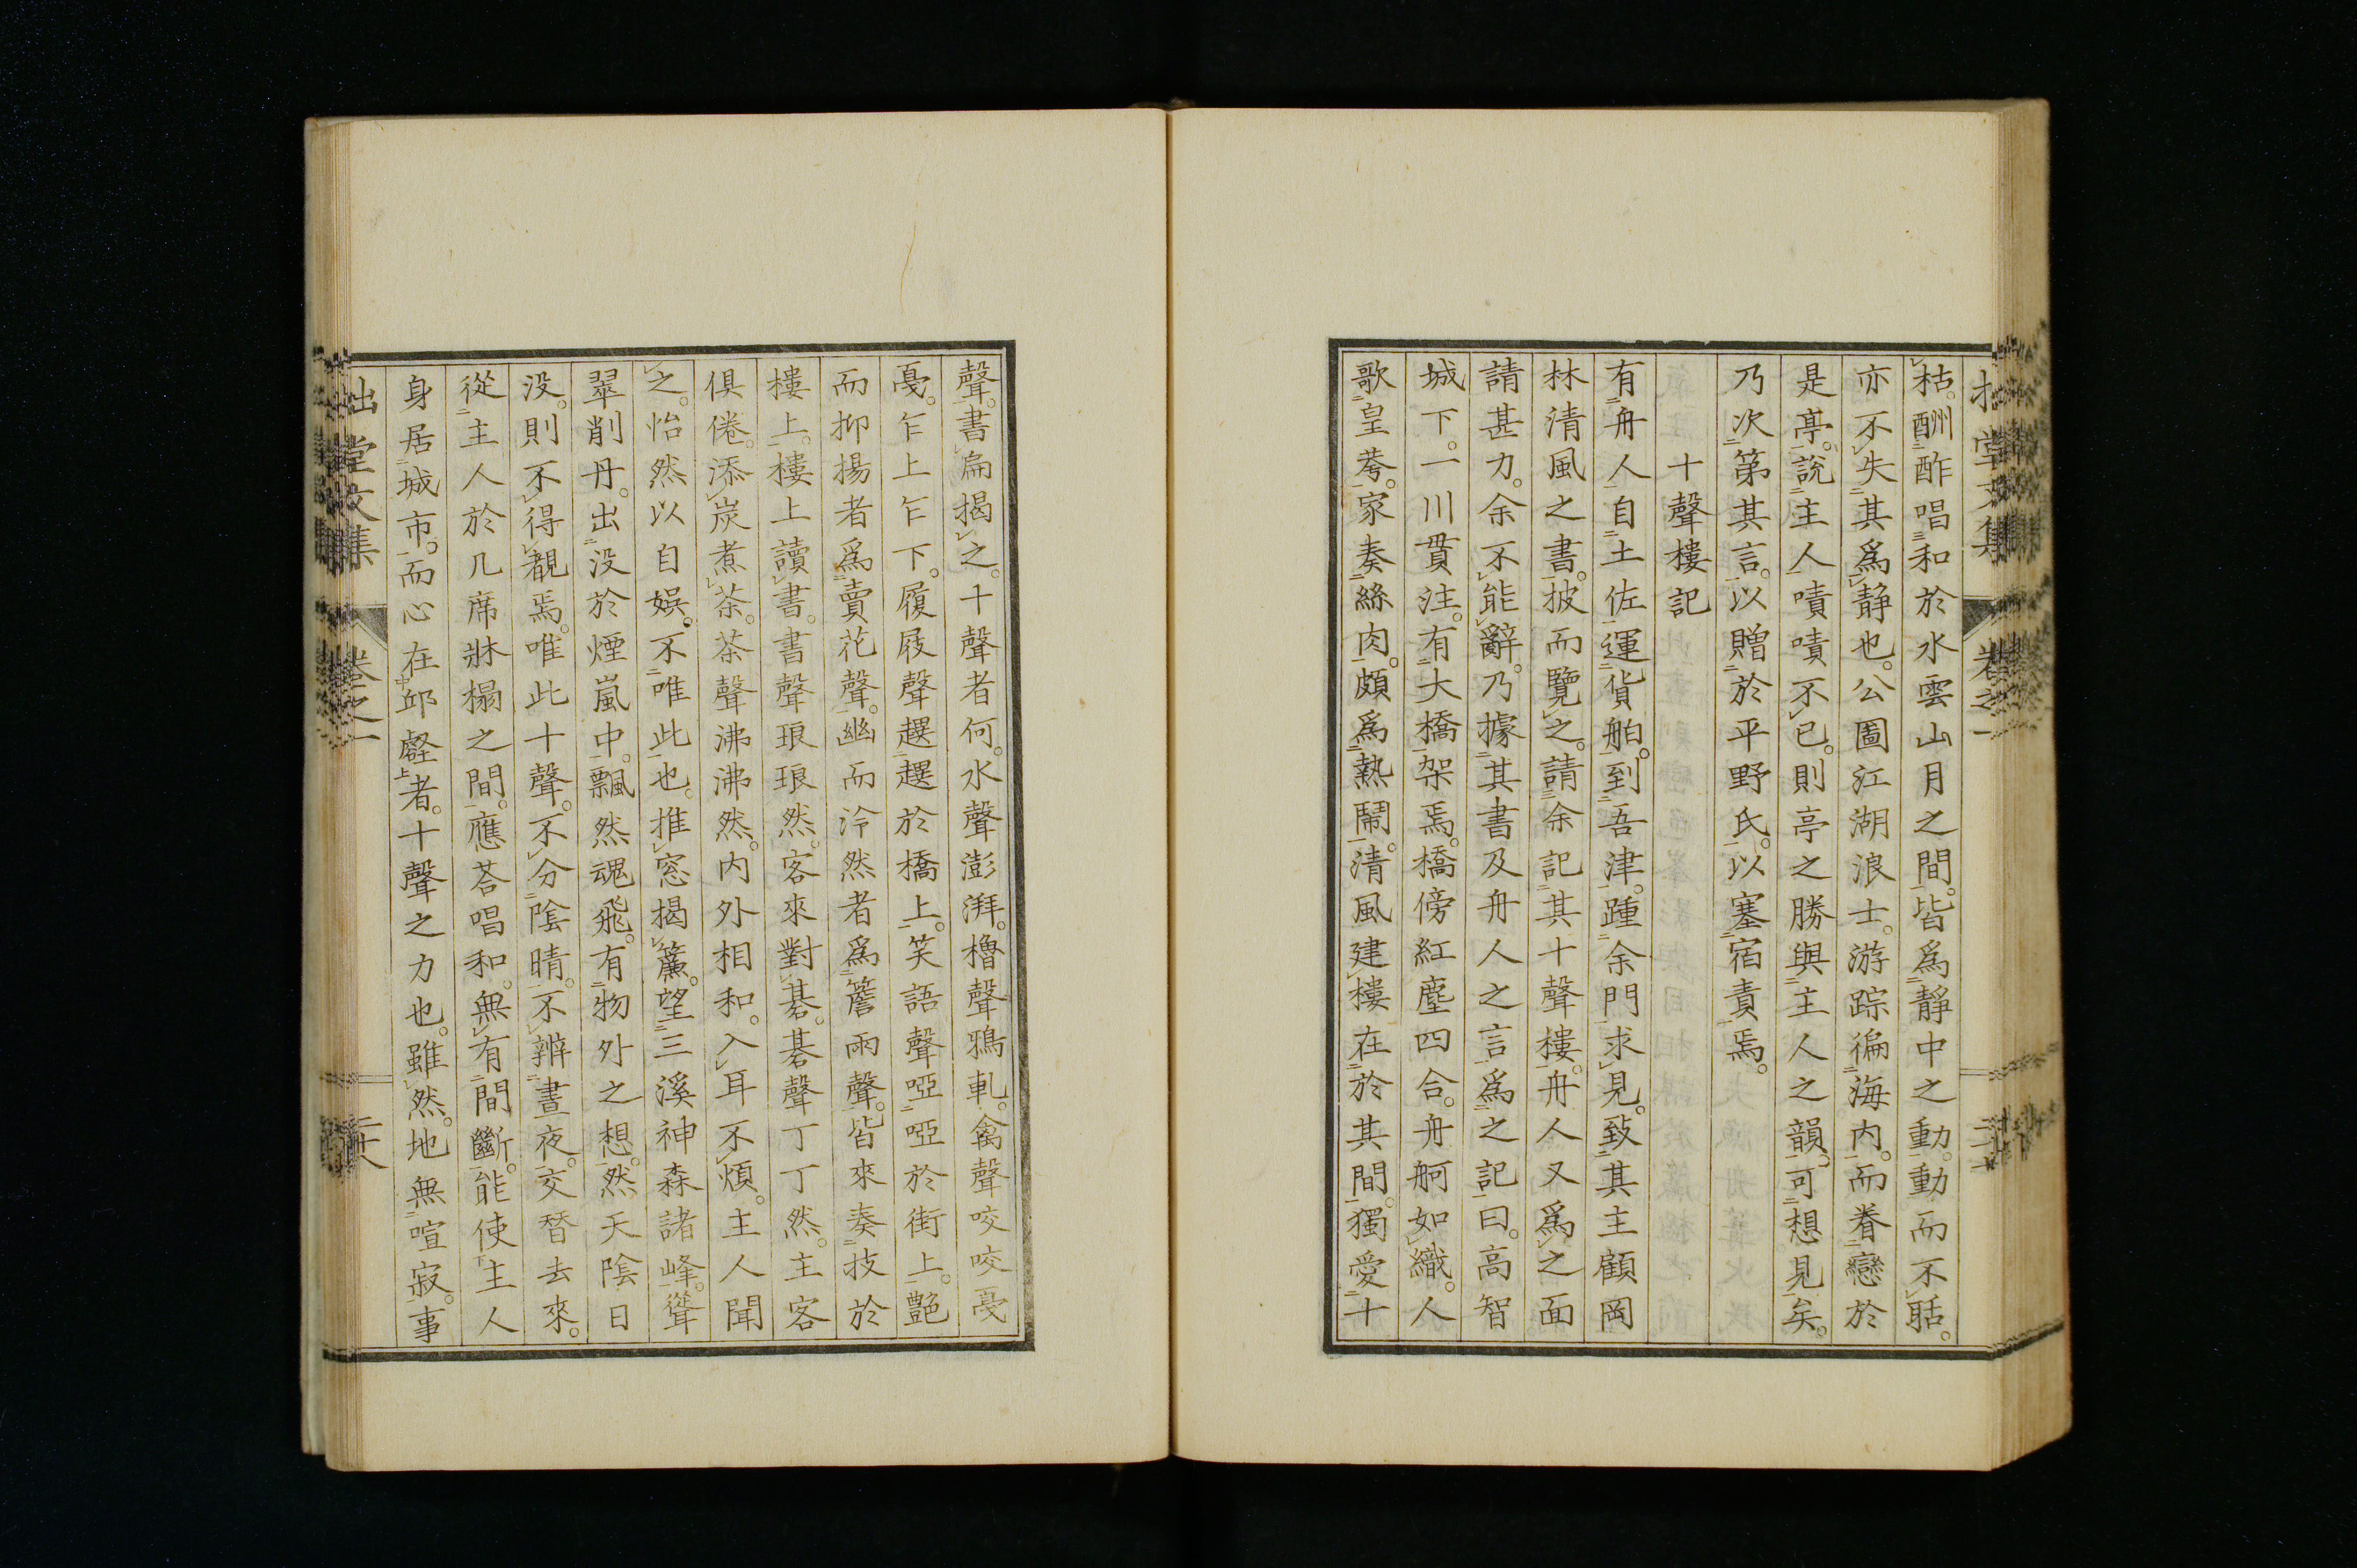 枯。酬酢唱和於水雲山月之間。皆爲靜中之動。動而不聒。
亦不失其爲靜也。公圖江湖浪士。游踪徧海内。而眷戀於
是亭。說主人嘖嘖不已。則亭之勝與主人之韻。可想見矣。
乃次第其言。以贈於平野氏。以塞宿責焉。
十聲樓記
有舟人自土佐運貨舶。到吾津。踵余門求見。致其主顧岡
林清風之書。披而覽之。請余記其十聲樓。舟人又爲之面
請甚力。余不能辭。乃據其書及舟人之言爲之記曰。高智
城下。一川貫注。有大橋架焉。橋傍紅塵四合。舟舸如織。人
歌皇荂。家奏絲肉。頗爲熱鬧。清風建樓在於其間。獨愛十
聲。書扁揭之。十聲者何。水聲澎湃。櫓聲鴉軋。禽聲咬咬戞
戞。乍上乍下。履屐聲趯趯於橋上。笑語聲啞啞於街上。艶
而抑揚者爲賣花聲。幽而泠然者爲簷雨聲。皆來奏技於
樓上。樓上讀書。書聲琅琅然。客來對棊。棊聲丁丁然。主客
俱倦。添炭煮茶。茶聲沸沸然。内外相和。入耳不煩。主人聞
之。怡然以自娛。不唯此也。推窓揭簾。望三溪神森諸峰。聳
翠削丹。出没於煙嵐中。飄然魂飛。有物外之想。然天陰日
没。則不得覩焉。唯此十聲。不分陰晴。不辨晝夜。交朁去來。
從主人於几席牀榻之間。應荅唱和。無有間斷。能使主人
身居城市。而心在邱壑者。十聲之力也。雖然。地無喧寂。事
拙堂文集 卷之一